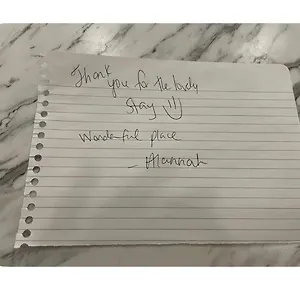 Thank
you for the lovely
stay :)
Wonderful place
- Hannah